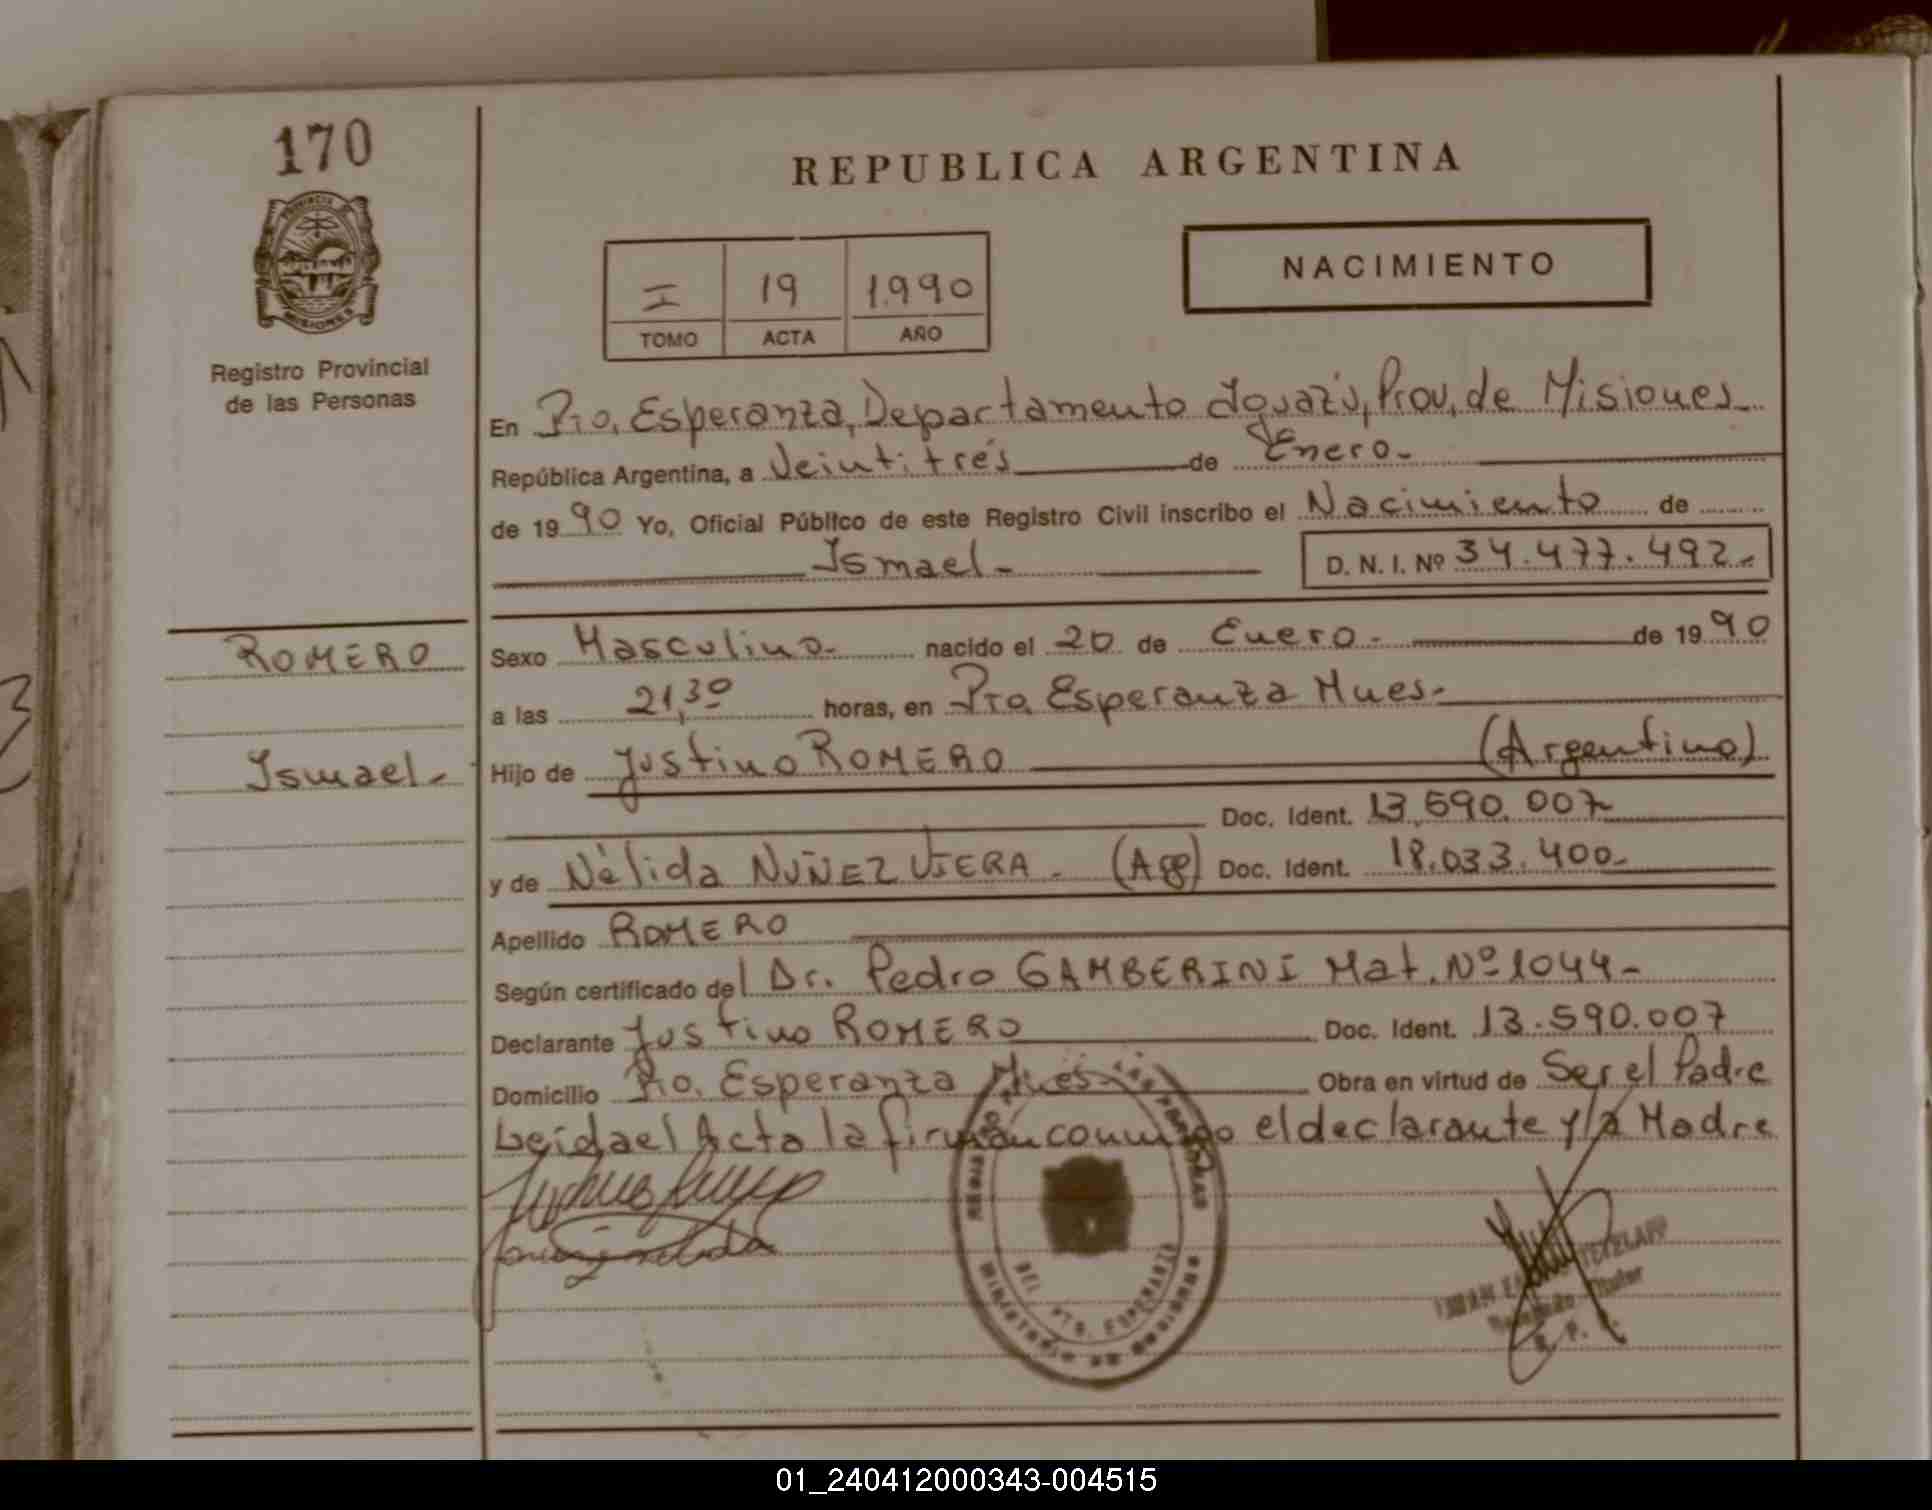 170
REPUBLICA ARGENTINA
PROVINCIA DE
MISIONES
Registro Provincial
de las Personas
I 19 1.990
TOMO ACTA AÑO
NACIMIENTO
En Pto. Esperanza, Departamento Iguazú, Prov. de Misiones
República Argentina, a Veintitrés de Enero.-
de 19 90 Yo, Oficial Público de este Registro Civil inscribo el Nacimiento de
Ismael- D. N. I. Nº 34.477.492.-
ROMERO
Sexo Masculino- nacido el 20 de Enero.- de 19 90
a las 21,30 horas, en Pto. Esperanza Mnes.-
Ismael-
Hijo de Justino ROMERO (Argentino)
Doc. Ident. 13.590.007
y de Nélida NUÑEZ VIERA.- (Arg) Doc. Ident. 18.033.400-
Apellido ROMERO
Según certificado del Dr. Pedro GAMBERINI Mat. Nº 1044-
Declarante Justino ROMERO Doc. Ident. 13.590.007
Domicilio Pto. Esperanza Mnes- Obra en virtud de Ser el Padre
Leida el Acta la firman conmigo el declarante y la Madre
LAS PERSONAS
PTO. ESPERANZA
MINISTERIO DE
Titular
R. P.
01_240412000343-004515